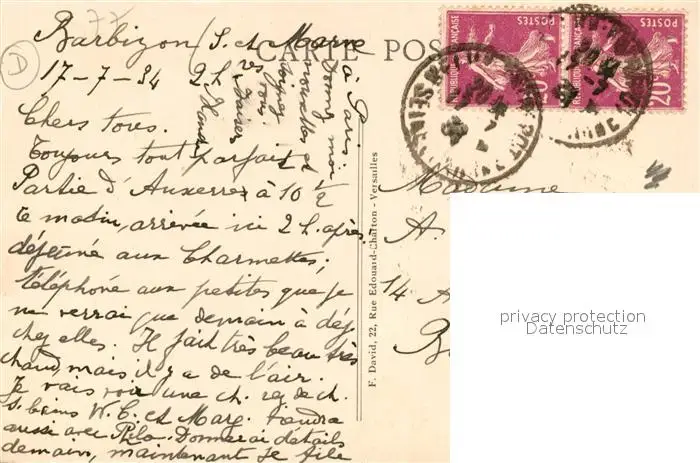 77
D
Barbizon (S. et Marne
17-7-34 2 h.
CARTE POSTALE
Chers tous.
Toujours tout parfait.
Partie d'Auxerre à 10 1/2
le matin, arrivée ici 2 h. après.
déjeuné aux Charmettes,
téléphoné aux petites que je
ne verrai que demain à déj.
chez elles. Il fait très beau très
chaud, mais il y a de l'air.
Je vais voir une ch. rez de ch.
s. bains W.C. et Marg. viendra
aussi avec Rila. Donnerai détails
demain, maintenant je file
à Paris.
Donnez moi
nouvelles et
soyez
tous
F. David, 22, Rue Edouard-Charton - Versailles
POSTES
REPUBLIQUE FRANÇAISE
20
POSTES
REPUBLIQUE FRANÇAISE
20
Madame
A.
14 A
privacy protection
Datenschutz